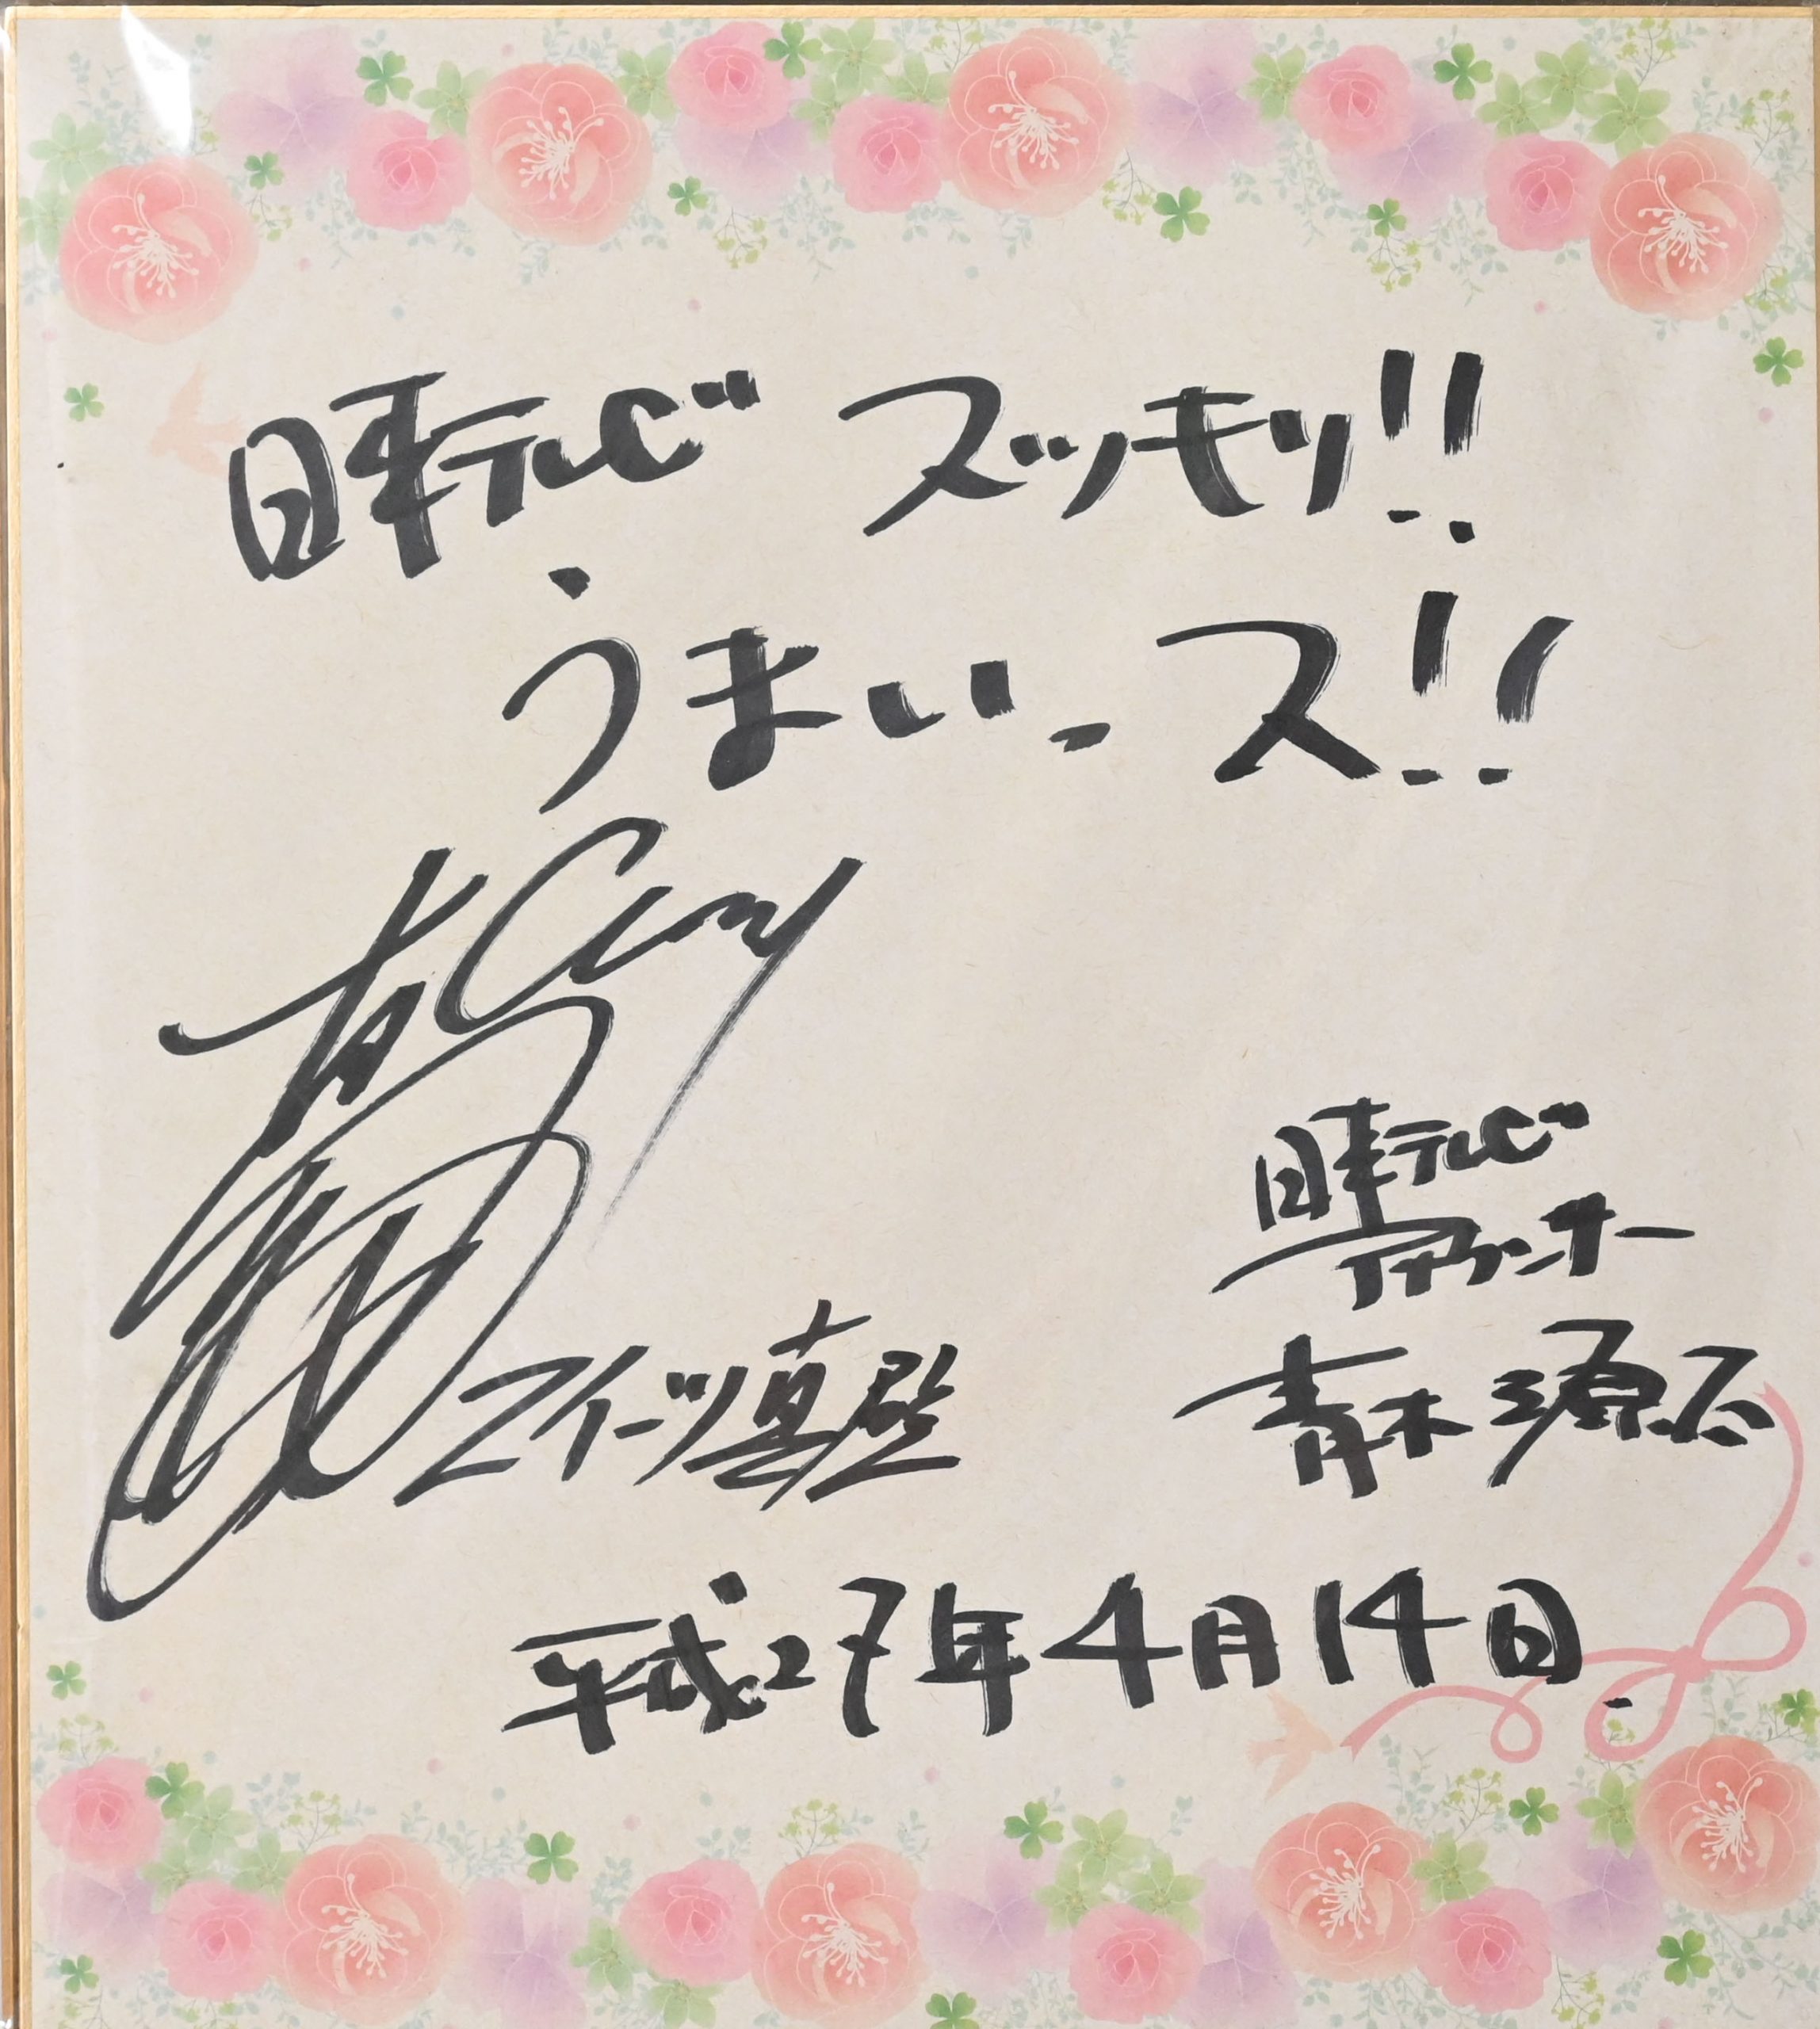 日本テレビ スッキリ!!
うまいっス!!
スイーツ真壁
日本テレビ
アナウンサー
青木源太
平成27年4月14日